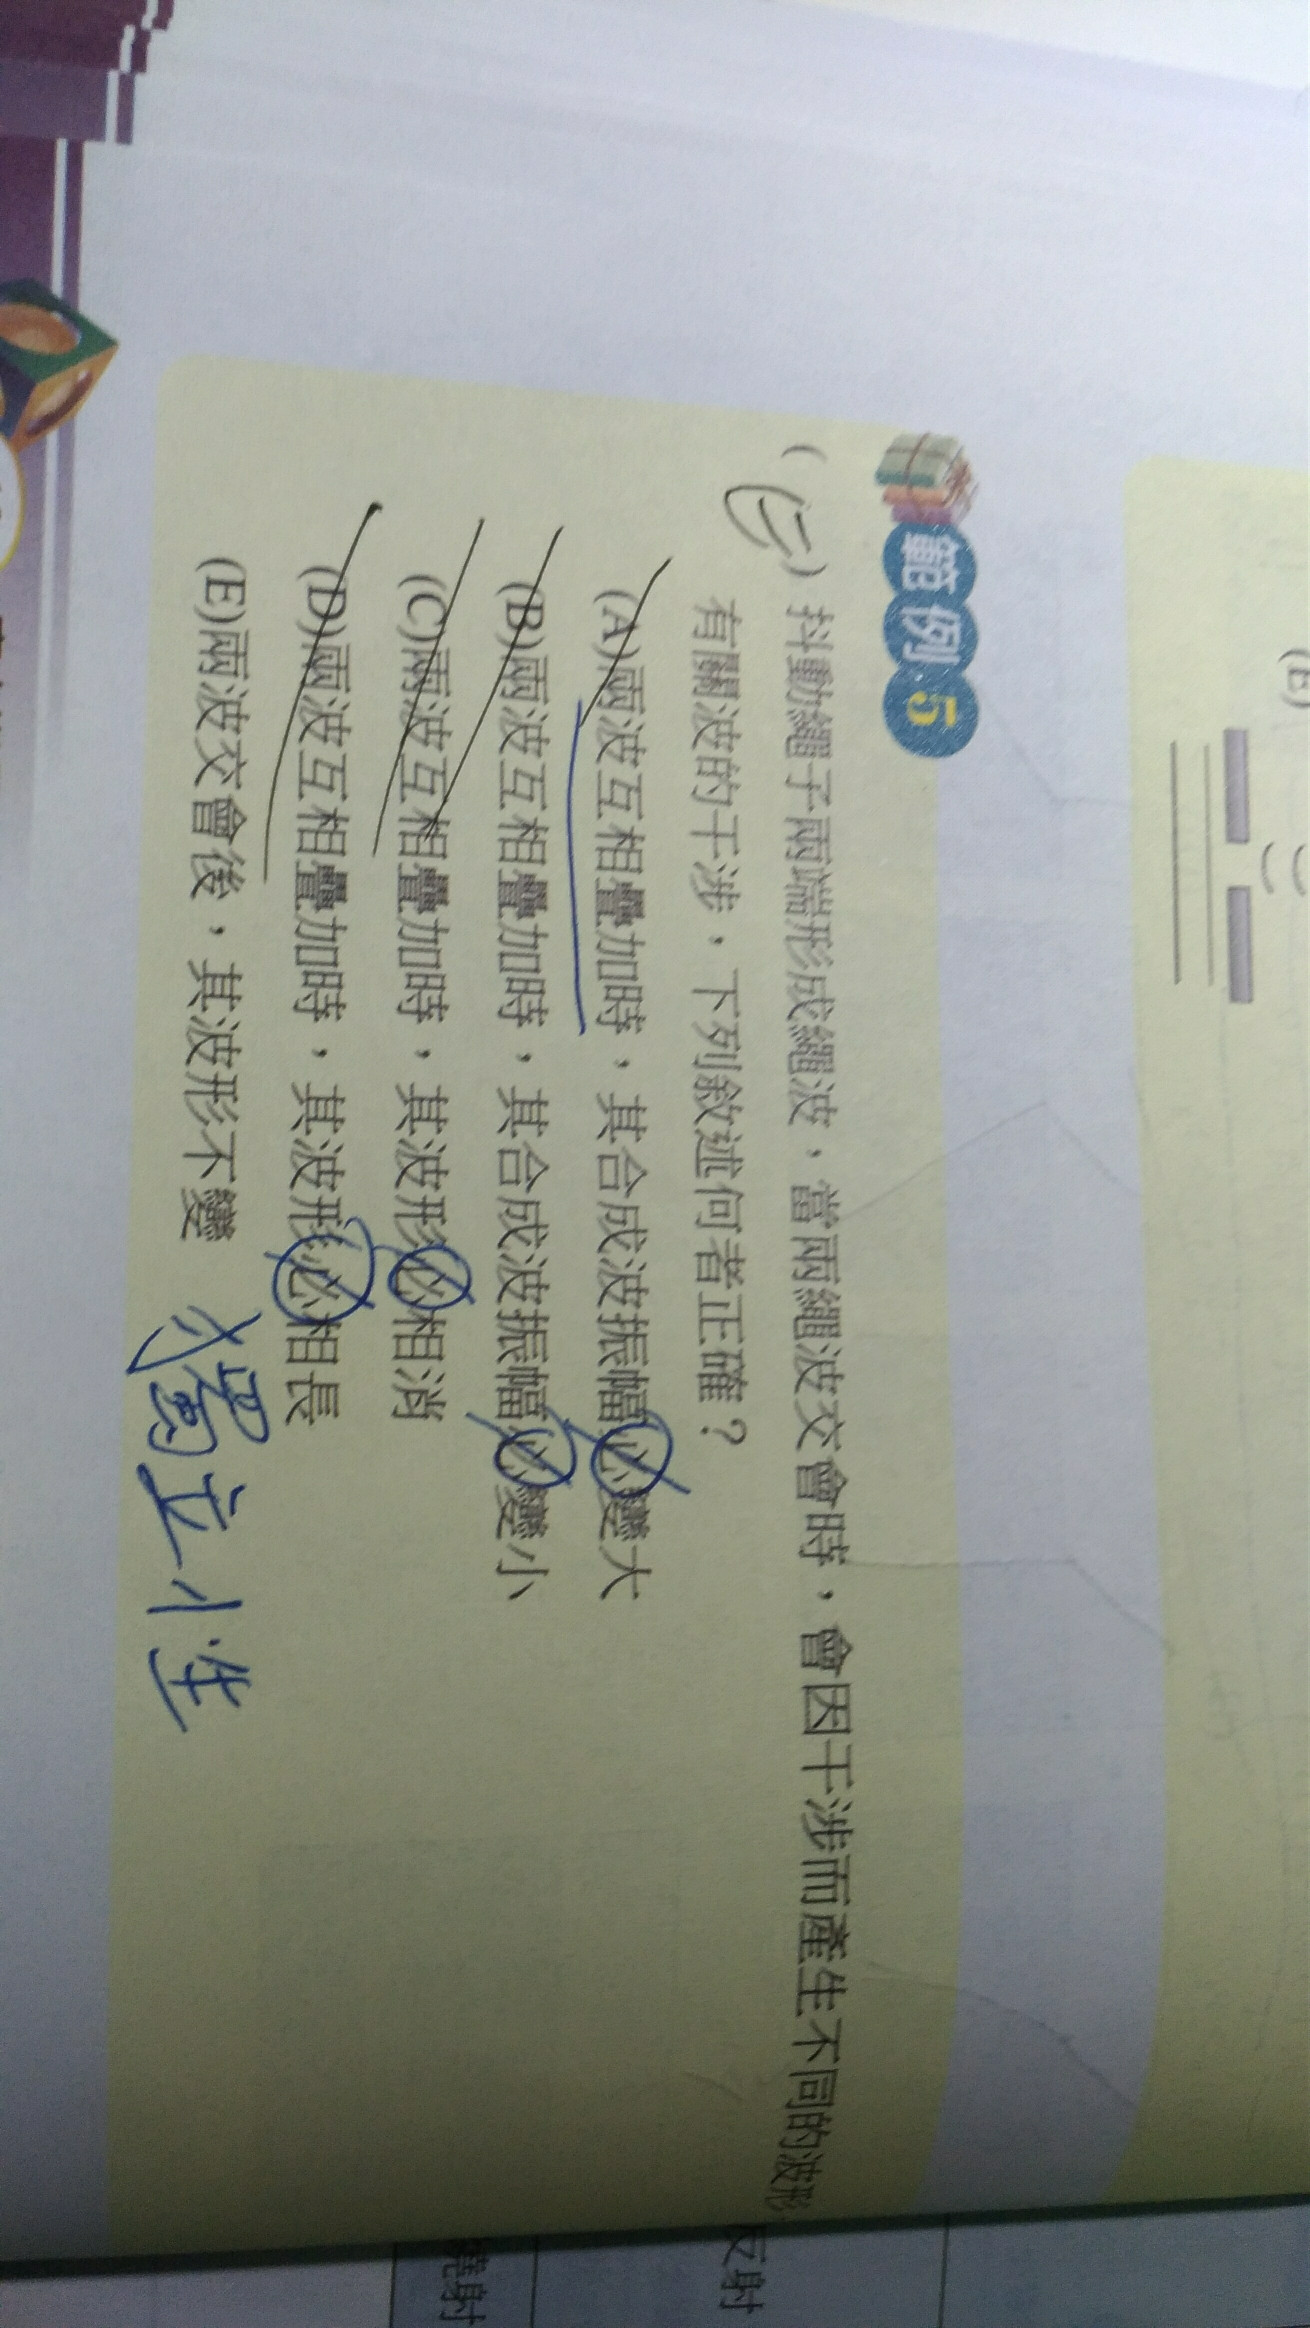 (E)
範例 5
(E) 抖動繩子兩端形成繩波，當兩繩波交會時，會因干涉而產生不同的波形
有關波的干涉，下列敘述何者正確？
(A)兩波互相疊加時，其合成波振幅必變大
(B)兩波互相疊加時，其合成波振幅必變小
(C)兩波互相疊加時，其波形必相消
(D)兩波互相疊加時，其波形必相長
(E)兩波交會後，其波形不變
獨立小生
反射
繞射